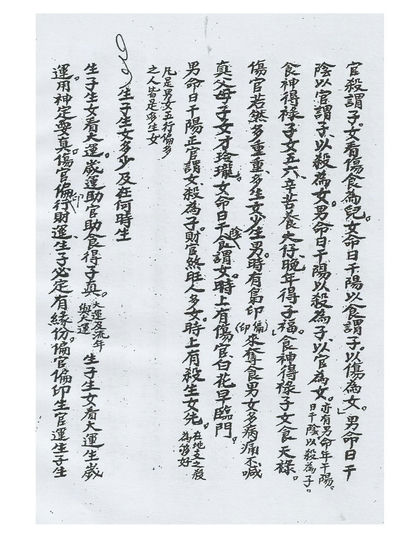 官殺謂子女看傷食為兒。女命日干陽以食謂子。以傷為女。男命日干
陰以官謂子以殺為女。男命日干陽以殺為子以官為女。亦有男命年干陽。日干陰以殺為子。
食神得祿子女五六。辛苦養大行晚年得子福。食神得祿子女食天祿。
傷官若然多重重。多生女少生男。時有梟印(偏印)來奪食男女多病痛不喊
真父母子女才玲瓏。女命日干陰食謂女。時上有傷官。白花早臨門。
男命日干陽正官謂女殺為子。財官煞旺人多女。時上有殺生女先。在地支之殺為夠好
凡是男女五行偏多
之人皆是多生女
生子生女多少及在何時生
生子生女看大運。歲運助官助食得子真。大運及流年與大運 生子生女看大運生歲
運用神定要真。傷官偏印偏行財運。生子必定有緣份。偏官偏印生官運生子生